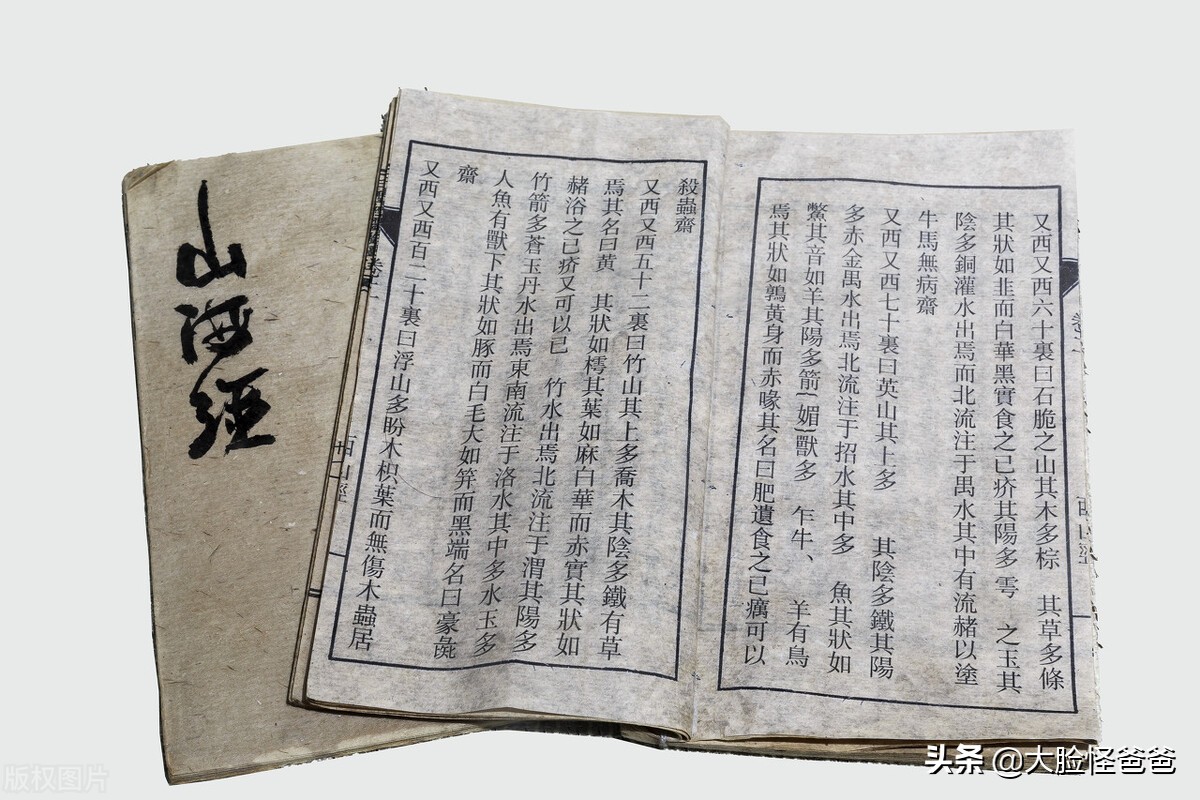 山海經
又西又西六十裏曰石脆之山其木多棕　其草多條
其狀如韭而白華黑實食之已疥其陽多雩　之玉其
陰多銅灌水出焉而北流注于禺水其中有流赭以塗
牛馬無病齋
又西又西七十裏曰英山其上多　　其陰多鐵其陽
多赤金禺水出焉北流注于招水其中多　魚其狀如
鱉其音如羊其陽多箭{媚}獸多　乍牛、　羊有鳥
焉其狀如鶉黃身而赤喙其名曰肥遺食之已癘可以
殺蟲齋
又西又西五十二裏曰竹山其上多喬木其陰多鐵有草
焉其名曰黃　其狀如樗其葉如麻白華而赤實其狀如
赭浴之已疥又可以已　竹水出焉北流注于渭其陽多
竹箭多蒼玉丹水出焉東南流注于洛水其中多水玉多
人魚有獸下其狀如豚而白毛大如筓而黑端名曰豪彘
齋
又西又西百二十裏曰浮山多盼木枳葉而無傷木蟲居
西山經
头条 @大脸怪爸爸
版权图片